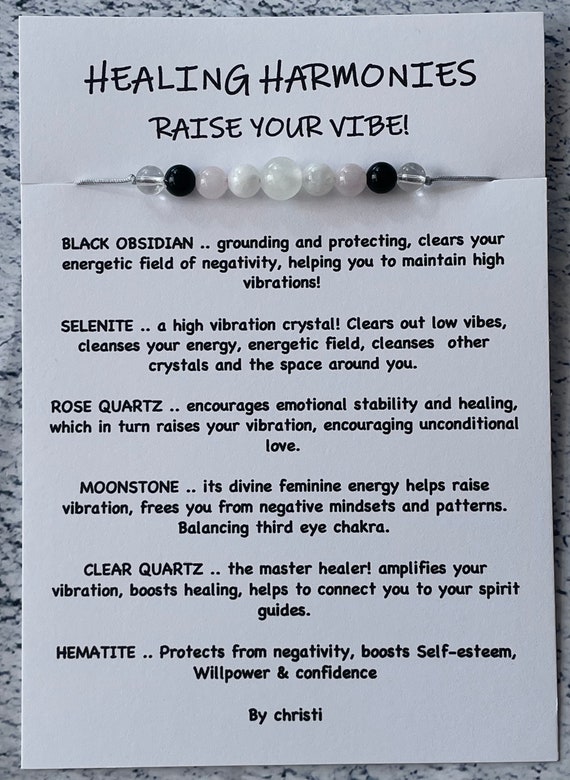 HEALING HARMONIES
RAISE YOUR VIBE!
BLACK OBSIDIAN .. grounding and protecting, clears your
energetic field of negativity, helping you to maintain high
vibrations!
SELENITE .. a high vibration crystal! Clears out low vibes,
cleanses your energy, energetic field, cleanses other
crystals and the space around you.
ROSE QUARTZ .. encourages emotional stability and healing,
which in turn raises your vibration, encouraging unconditional
love.
MOONSTONE .. its divine feminine energy helps raise
vibration, frees you from negative mindsets and patterns.
Balancing third eye chakra.
CLEAR QUARTZ .. the master healer! amplifies your
vibration, boosts healing, helps to connect you to your spirit
guides.
HEMATITE .. Protects from negativity, boosts Self-esteem,
Willpower & confidence
By christi